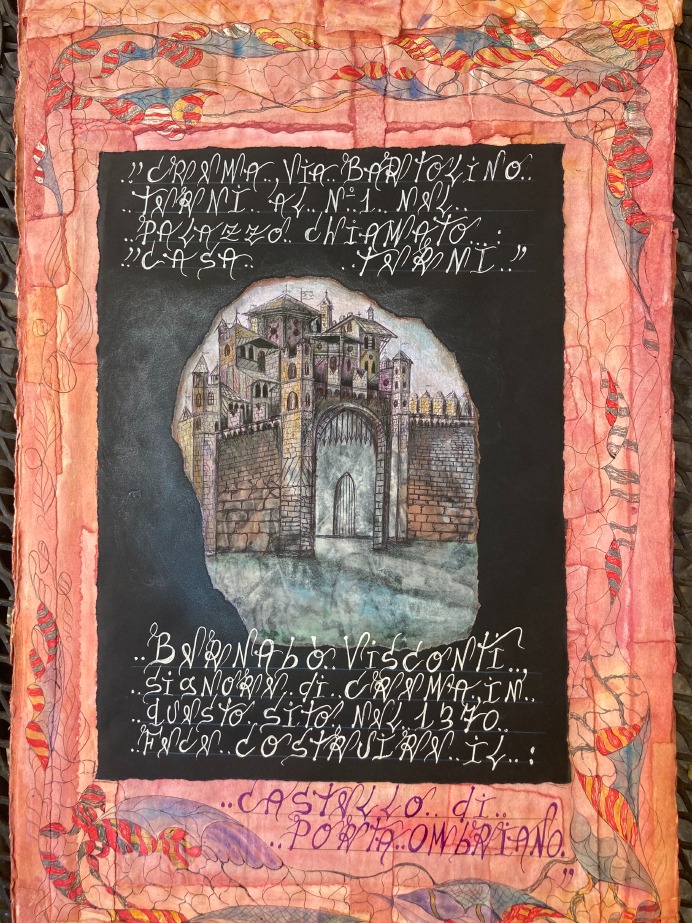 .."CREMA..Via..BARTOLINO..
..TERNI..AL..N°.1..NEL..
..PALAZZO..ChiAMATO..:
"CASA.. ..TERNI.."
..BERNAbò..VISCONTI..,
..SIGNORE..di..CREMA,iN..
..QUESTO..SITO..NEL..1370..
..FECE..COSTRUIRE..IL..:
..CASTELLO..di..
..PORTA..OMbRIANO."